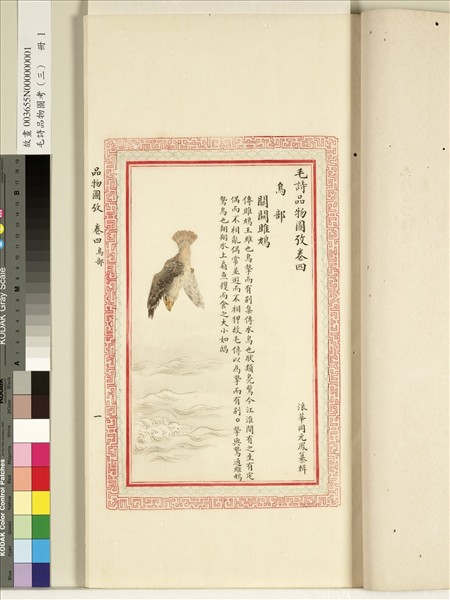 毛詩品物圖攷卷四
浪華岡元鳳纂輯
鳥部
關關雎鳩
傳雎鳩王雎也鳥摯而有別集傳水鳥也狀類鳧鷖今江淮間有之生有定
偶而不相亂偶常並遊而不相狎故毛傳以為摯而有別○摯與鷙通雎鳩
鷙鳥也翱翔水上扇魚攫而食之大小如鴟
品物圖攷 卷四鳥部
一
故畫 003655N000000001
毛詩品物圖考(三) 冊 1
KODAK Gray Scale
KODAK Color Control Patches